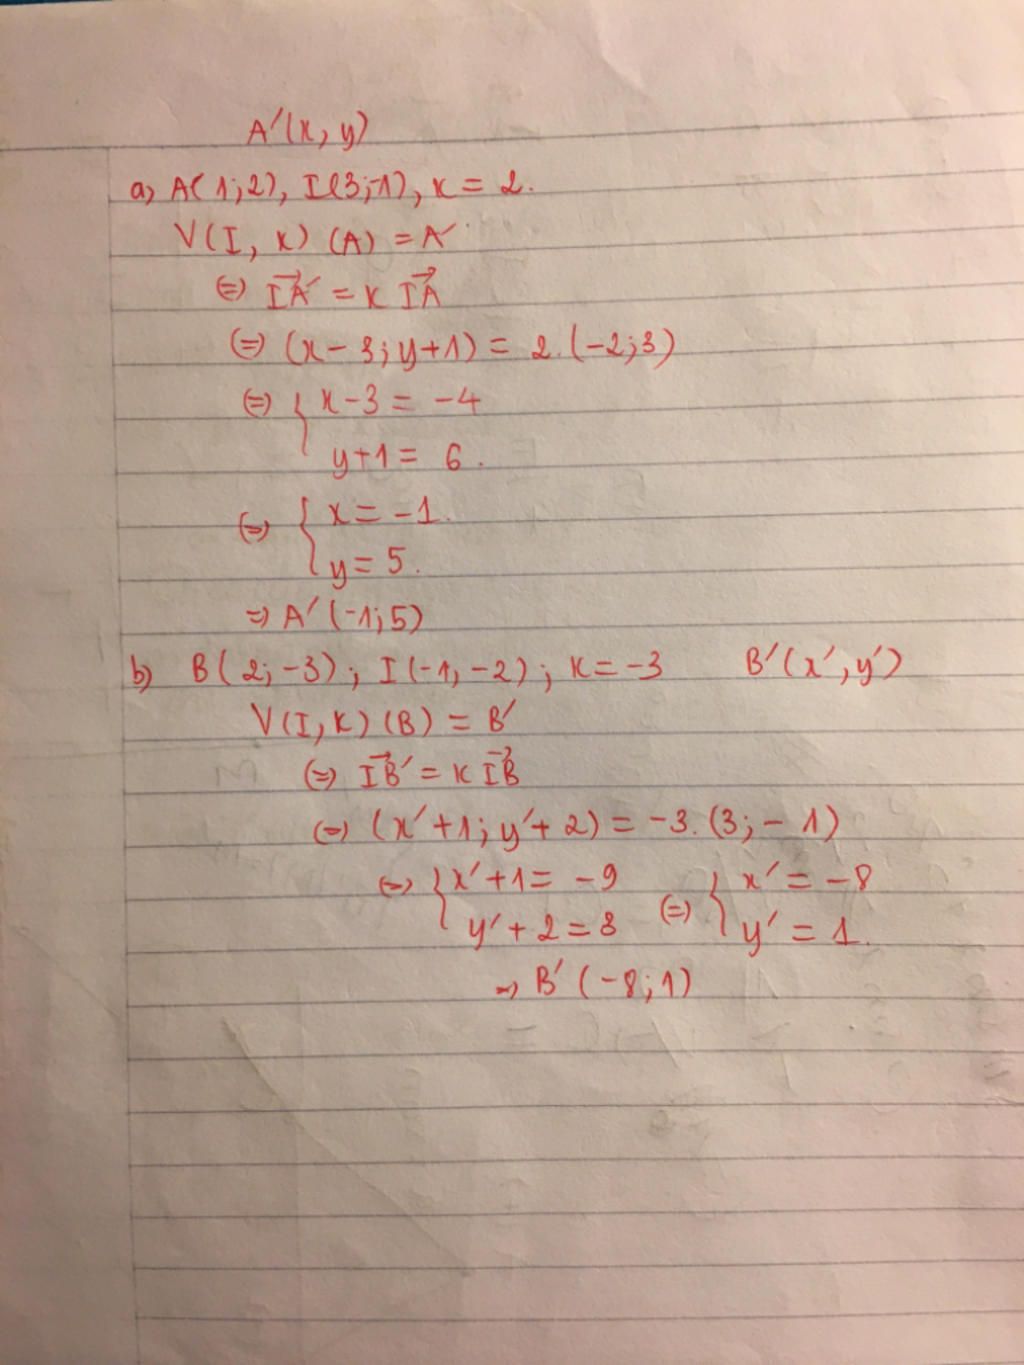 A'(x, y)
a, A(1;2), I(3;-1), K = 2.
V(I, K) (A) = A'
(=) IA' = K IA
(=) (x - 3; y+1) = 2. (-2;3)
(=) { x - 3 = -4
y+1 = 6.
(=) { x = -1.
y = 5.
=) A' (-1;5)
b) B(2; -3); I(-1, -2); K = -3 B'(x', y')
V(I, K) (B) = B'
(=) IB' = K IB
(=) (x' +1; y'+ 2) = -3. (3; - 1)
(=) { x' +1 = -9 (=) { x' = -8
y' + 2 = 3 y' = 1.
=) B' (-8;1)